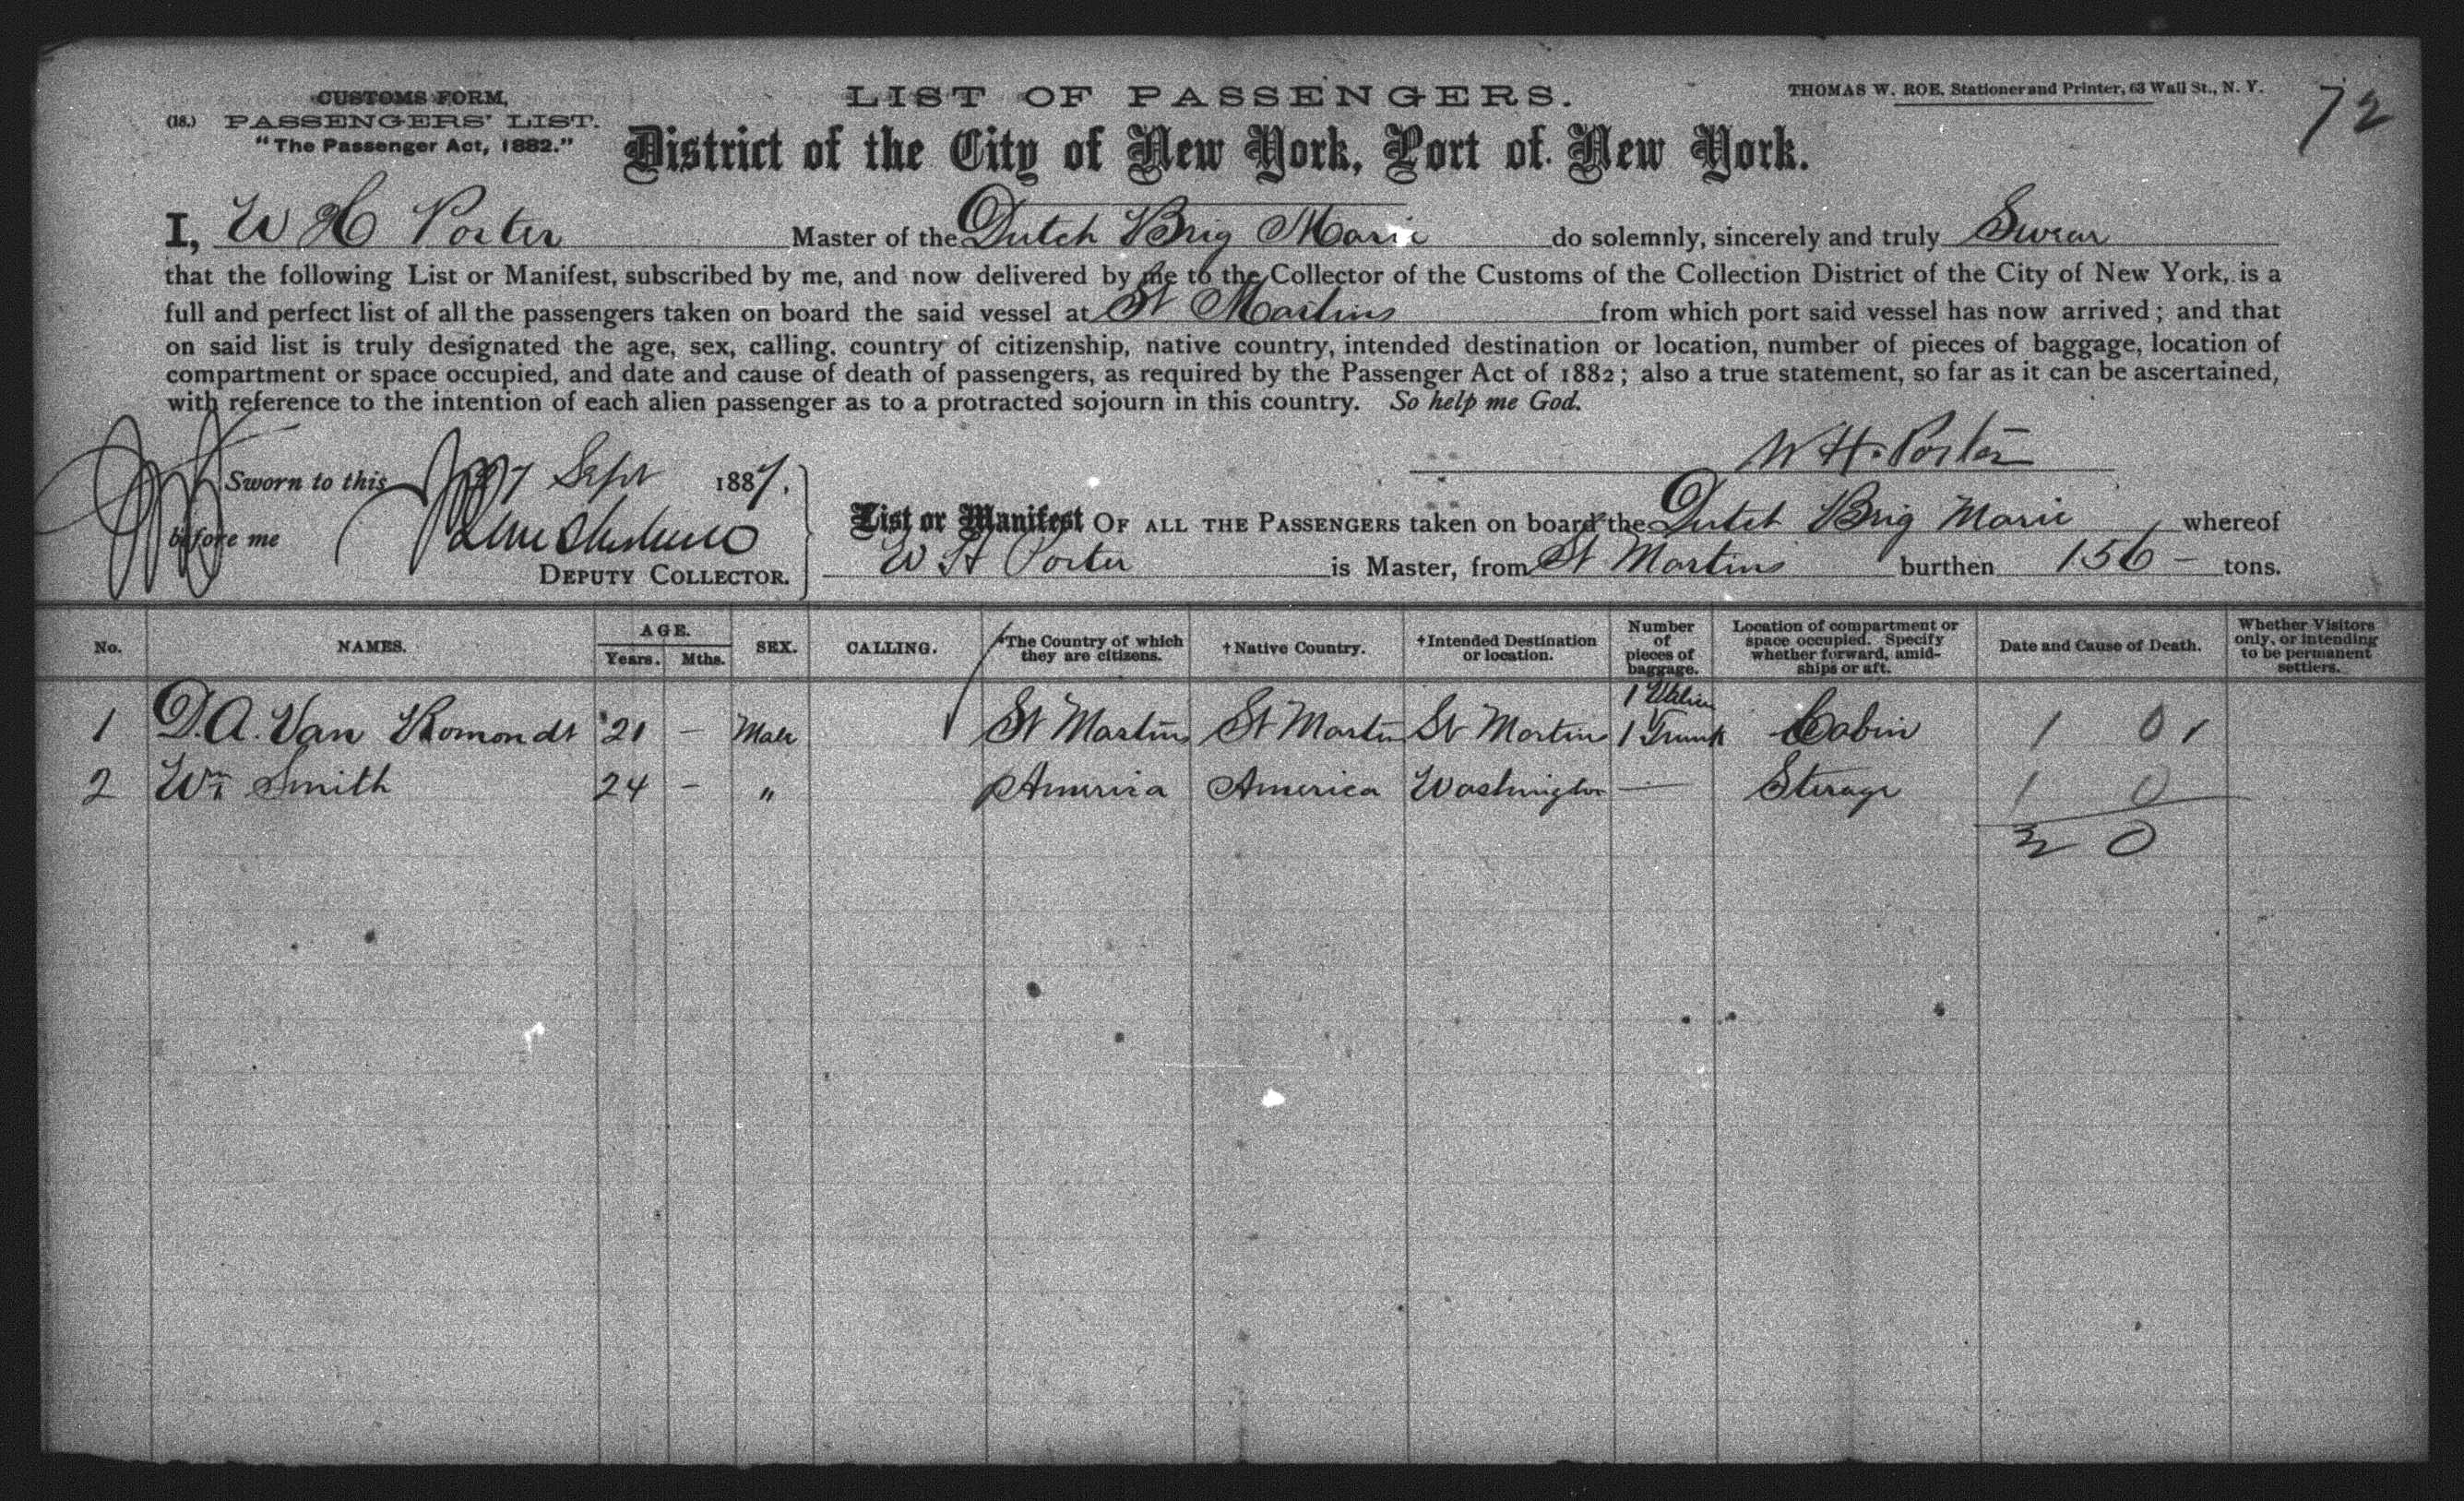 CUSTOMS FORM,
(18.) PASSENGERS' LIST.
"The Passenger Act, 1882."
LIST OF PASSENGERS.
THOMAS W. ROE, Stationer and Printer, 63 Wall St., N. Y.
72
District of the City of New York, Port of New York.
I, W H Porter Master of the Dutch Brig Marie do solemnly, sincerely and truly Swear
that the following List or Manifest, subscribed by me, and now delivered by me to the Collector of the Customs of the Collection District of the City of New York, is a
full and perfect list of all the passengers taken on board the said vessel at St Martins from which port said vessel has now arrived; and that
on said list is truly designated the age, sex, calling, country of citizenship, native country, intended destination or location, number of pieces of baggage, location of
compartment or space occupied, and date and cause of death of passengers, as required by the Passenger Act of 1882; also a true statement, so far as it can be ascertained,
with reference to the intention of each alien passenger as to a protracted sojourn in this country. So help me God.
W. H. Porter
Sworn to this 27 Sept 1887.
before me
DEPUTY COLLECTOR.
List or Manifest OF ALL THE PASSENGERS taken on board the Dutch Brig Marie whereof
W H Porter is Master, from St Martins burthen 156 – tons.
No. NAMES. AGE. Years. Mths. SEX. CALLING. †The Country of which they are citizens. †Native Country. †Intended Destination or location. Number of pieces of baggage. Location of compartment or space occupied. Specify whether forward, amidships or aft. Date and Cause of Death. Whether Visitors only, or intending to be permanent settlers.
1 D. A. Van Romondt 21 – Male St Martins St Martin St Martins 1 1 Trunk Cabin 1 0
2 Wm Smith 24 – " America America Washington — Sterage 1 0
2 0